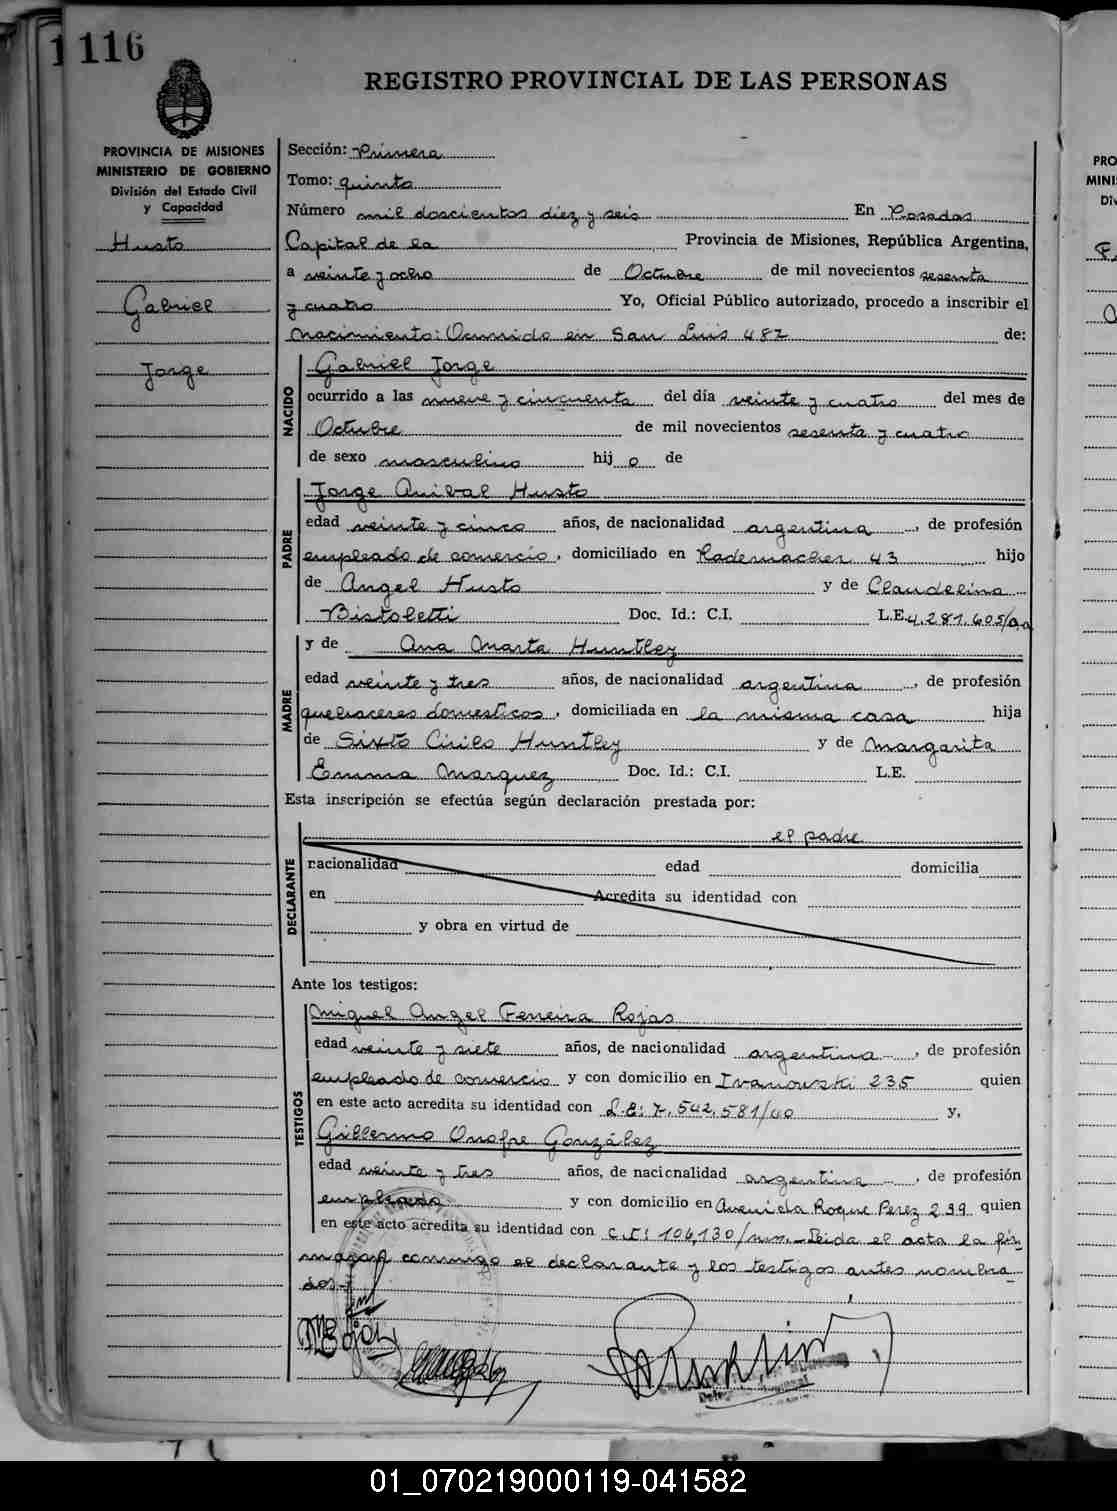 1 116
REGISTRO PROVINCIAL DE LAS PERSONAS
PROVINCIA DE MISIONES
MINISTERIO DE GOBIERNO
División del Estado Civil
y Capacidad
Husto
Gabriel
Jorge
Sección: Primera
Tomo: quinto
Número mil doscientos diez y seis En Posadas
Capital de la Provincia de Misiones, República Argentina,
a veinte y ocho de Octubre de mil novecientos sesenta
y cuatro Yo, Oficial Público autorizado, procedo a inscribir el
nacimiento: Ocurrido en San Luis 487 de:
NACIDO
Gabriel Jorge
ocurrido a las nueve y cincuenta del día veinte y cuatro del mes de
Octubre de mil novecientos sesenta y cuatro
de sexo masculino hijo de
PADRE
Jorge Anibal Husto
edad veinte y cinco años, de nacionalidad argentina, de profesión
empleado de comercio, domiciliado en Rademacher 43 hijo
de Angel Husto y de Claudelina
Bistoletti Doc. Id.: C.I. L.E. 4.281.605/
MADRE
y de Ana Marta Huntley
edad veinte y tres años, de nacionalidad argentina, de profesión
quehaceres domesticos, domiciliada en la misma casa hija
de Sixto Cirilo Huntley y de Margarita
Emma Marquez Doc. Id.: C.I. L.E.
Esta inscripción se efectúa según declaración prestada por:
DECLARANTE
el padre
nacionalidad edad domicilia
en Acredita su identidad con
y obra en virtud de
Ante los testigos:
TESTIGOS
Miguel Angel Ferreira Rojas
edad veinte y siete años, de nacionalidad argentina, de profesión
empleado de comercio y con domicilio en Ivanowski 235 quien
en este acto acredita su identidad con L.E: 7.542.581/40 y,
Gillermo Onofre González
edad veinte y tres años, de nacionalidad argentina, de profesión
empleado y con domicilio en Avenida Roque Perez 299 quien
en este acto acredita su identidad con C.I: 104,130/mns.-Leida el acta la fir-
man conmigo el declarante y los testigos antes nombra-
dos.-
01_070219000119-041582